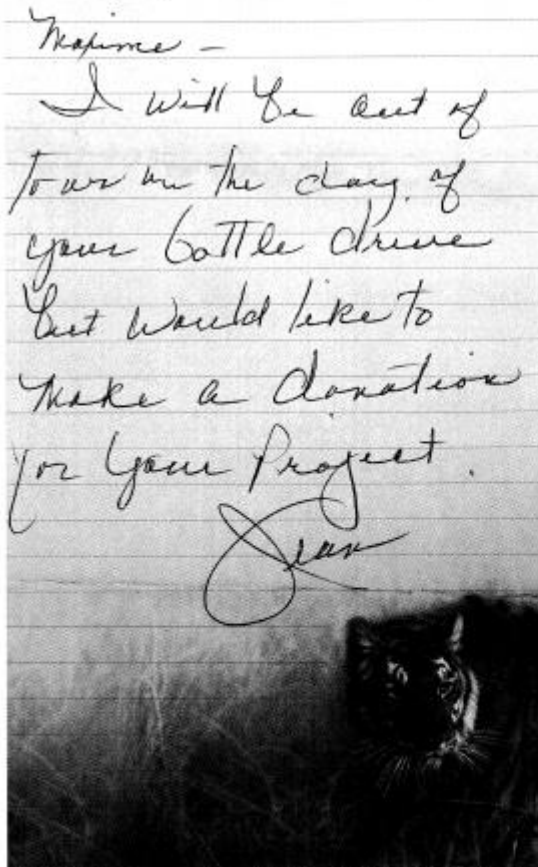 Maxime –
I will be out of
town on the day of
your bottle drive
but would like to
make a donation
for your Project.
Jean